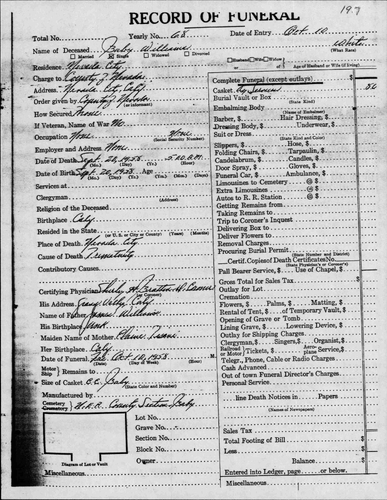 19.7
RECORD OF FUNERAL
Total No. Yearly No. 68 Date of Entry Oct. 10
Name of Deceased Baby Williams White
Married Single Widowed Divorced Husband Wife Widow (What Race)
Residence Nevada City Age of Husband or Wife (if living)
Charge to County of Nevada Complete Funeral (except outlays) $
Address Nevada City, Calif Casket by Services 50
Order given by County of Nevada Burial Vault or Box
(or informant) (State Kind)
How Secured None Embalming Body
If Veteran, Name of War No. Barber, $ Hair Dressing, $
Occupation None None Dressing Body, $ Underwear, $
(Social Security Number) Suit or Dress
Employer and Address None (State Kind and Color)
Slippers, $ Hose, $
Date of Death Sept. 20, 1958 5:20 A.M. Folding Chairs, $ Tarpaulin, $
(Mo.) (Day) (Yr.) (Hour) Candelabrum, $ Candles, $
Date of Birth Sept. 20, 1958 Door Spray, $ Gloves, $
(Mo.) (Day) (Yr.) (Age) Funeral Car, $ Ambulance, $
Services at Limousines to Cemetery @ $
Extra Limousines @ $
Clergyman Autos to R. R. Station @ $
(Address) Getting Remains from
Religion of the Deceased Taking Remains to
Birthplace Calif Trip to Coroner's Inquest
Resided in the State Delivering Box to
(or U.S., City or County) (Years) (Months) Deliver Flowers to
Place of Death Nevada City Removal Charges
Cause of Death Prematurity Procuring Burial Permit
(State Number and District)
Contributory Causes Certif. Copies of Death Certificates No.
(State Physician's or Coroner's)
Pall Bearer Service, $ Use of Chapel, $
Certifying Physician Gross Total for Sales Tax $
His Address Grass Valley Calif Outlay for Lot
Name of Father James Williams Cremation
Flowers, $ Palms, $ Matting, $
His Birthplace Rental of Tent, $ of Temporary Vault, $
Opening of Grave or Tomb
Maiden Name of Mother Lining Grave, $ Lowering Device, $
Outlay for Shipping Charges
Her Birthplace Calif Clergyman, $ Singers, $ Organist, $
Date of Funeral Oct. 10, 1958 Railroad or Motor Tickets, $ plane Service, $
(Mo.) (Day) (Date) (Hour) Telegr., Phone, Cable or Radio Charges
Motor Ship Remains to Cash Advanced
Size of Casket Baby Out of town Funeral Director's Charges
(State Color and Number) Personal Service
Manufactured by line Death Notices in Papers
Cemetery Crematory County Section Baby (Names of Newspapers)
Lot No.
Grave No. Sales Tax $
Section No. Total Footing of Bill $
Block No. Less $
Owner Balance $
Diagram of Lot or Vault Entered into Ledger, page or below.
Miscellaneous Miscellaneous